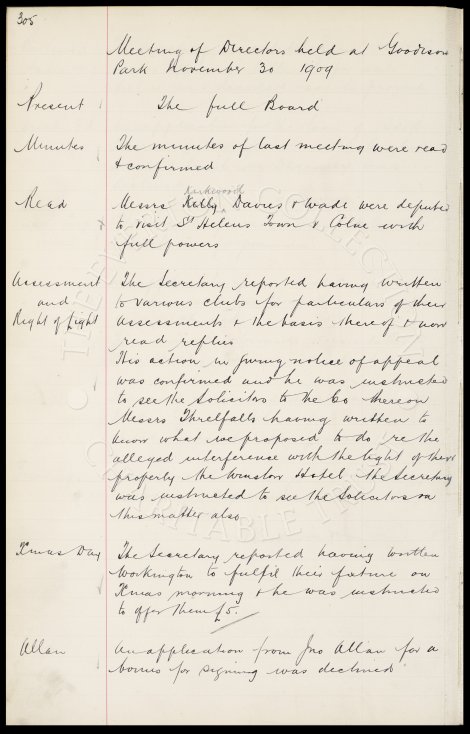 305
Meeting of Directors held at Goodison
Park November 30 1909
Present The full Board
Minutes The minutes of last meeting were read
& confirmed
Kirkwood
Read Messrs Kelly, Davies & Wade were deputed
to visit St Helens Town v Colne with
full powers
Assessment The Secretary reported having written
and to various clubs for particulars of their
Right of Light assessments & the basis thereof & now
read replies
His action in giving notice of appeal
was confirmed and he was instructed
to see the Solicitors to the Co thereon
Messrs Threlfalls having written to
know what we proposed to do re the
alleged interference with the light of their
property the Winslow Hotel the Secretary
was instructed to see the Solicitors on
this matter also
Xmas Day The Secretary reported having written
Workington to fulfil their fixture on
Xmas morning & he was instructed
to offer them £5.
Allan An application from Jno Allan for a
bonus for signing was declined
THE EVERTON COLLECTION
CHARITABLE TRUST